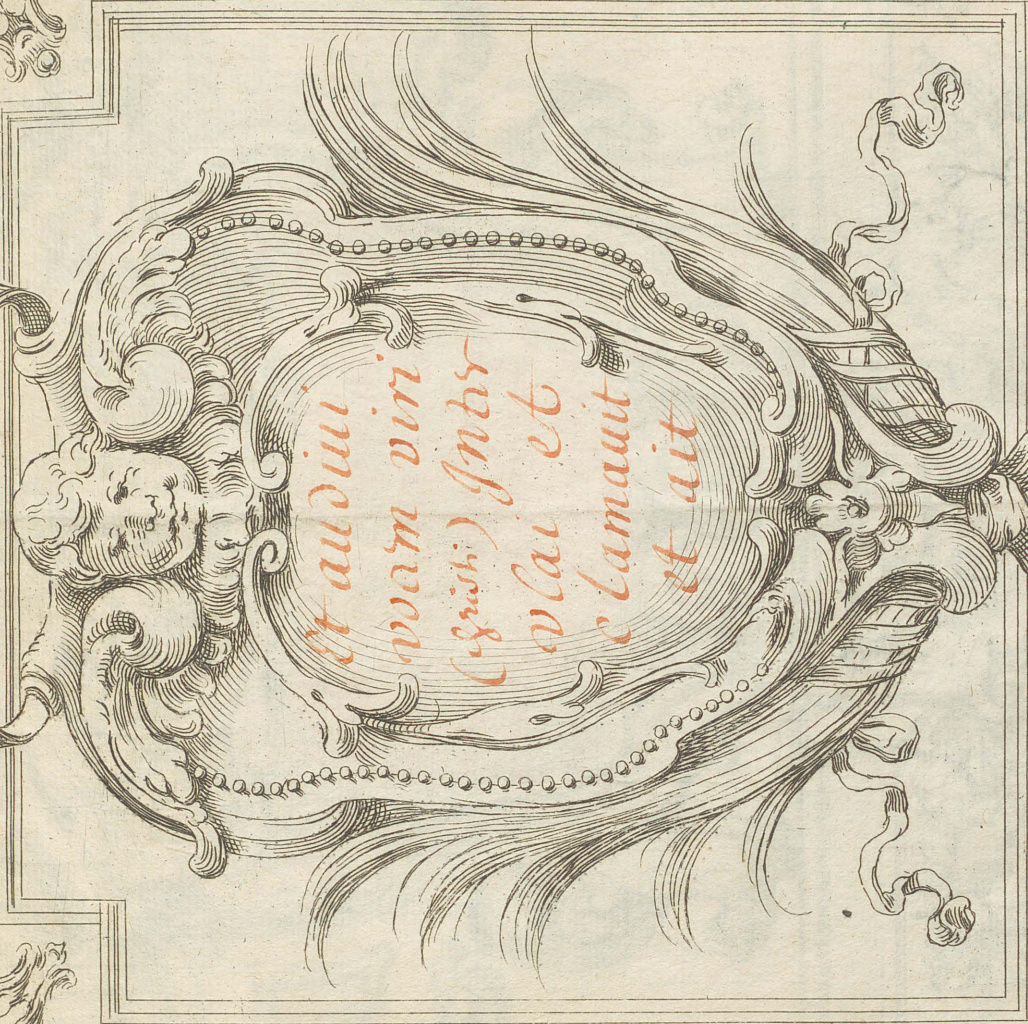 Et audiui
vocem viri
(Christi) Inter
Vlai et
clamauit
et ait